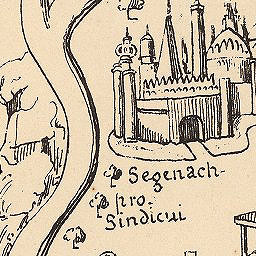 Segenach-
pro.
Sindicui